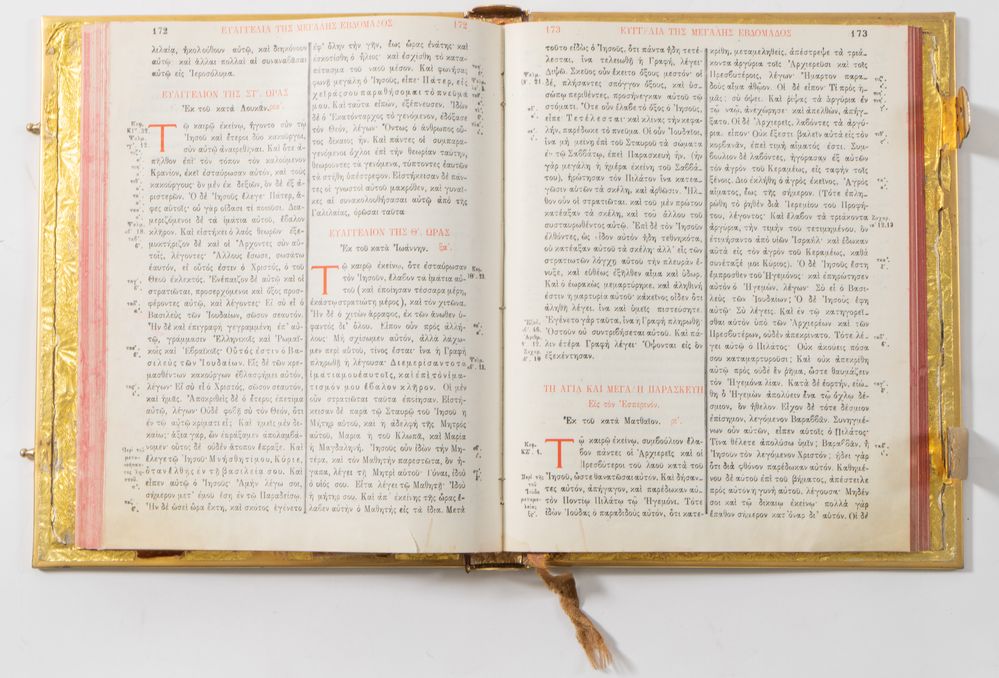 172 ΕΥΑΓΓΕΛΙΑ ΤΗΣ ΜΕΓΑΛΗΣ ΕΒΔΟΜΑΔΟΣ 172
λιλαίᾳ, ἠκολούθουν αὐτῷ, καὶ διηκόνουν
αὐτῷ· καὶ ἄλλαι πολλαὶ αἱ συναναβᾶσαι
αὐτῷ εἰς Ἱεροσόλυμα.
ΕΥΑΓΓΕΛΙΟΝ ΤΗΣ ΣΤ΄. ΩΡΑΣ
Ἐκ τοῦ κατὰ Λουκᾶν.
Τῷ καιρῷ ἐκείνῳ, ἤγοντο σὺν τῷ
Ἰησοῦ καὶ ἕτεροι δύο κακοῦργοι,
σὺν αὐτῷ ἀναιρεθῆναι. Καὶ ὅτε ἀ-
πῆλθον ἐπὶ τὸν τόπον τὸν καλούμενον
Κρανίον, ἐκεῖ ἐσταύρωσαν αὐτόν, καὶ τοὺς
κακούργους· ὃν μὲν ἐκ δεξιῶν, ὃν δὲ ἐξ ἀ-
ριστερῶν. Ὁ δὲ Ἰησοῦς ἔλεγε· Πάτερ, ἄ-
φες αὐτοῖς· οὐ γὰρ οἴδασι τί ποιοῦσι. Δια-
μεριζόμενοι δὲ τὰ ἱμάτια αὐτοῦ, ἔβαλον
κλῆρον. Καὶ εἱστήκει ὁ λαὸς θεωρῶν· ἐξε-
μυκτήριζον δὲ καὶ οἱ Ἄρχοντες σὺν αὐ-
τοῖς, λέγοντες· Ἄλλους ἔσωσε, σωσάτω
ἑαυτόν, εἰ οὗτός ἐστιν ὁ Χριστός, ὁ τοῦ
Θεοῦ ἐκλεκτός. Ἐνέπαιζον δὲ αὐτῷ καὶ οἱ
στρατιῶται, προσερχόμενοι καὶ ὄξος προσ-
φέροντες αὐτῷ, καὶ λέγοντες· Εἰ σὺ εἶ ὁ
Βασιλεὺς τῶν Ἰουδαίων, σῶσον σεαυτόν.
Ἦν δὲ καὶ ἐπιγραφὴ γεγραμμένη ἐπ' αὐ-
τῷ, γράμμασιν Ἑλληνικοῖς καὶ Ῥωμαϊ-
κοῖς καὶ Ἑβραϊκοῖς· Οὗτός ἐστιν ὁ Βα-
σιλεὺς τῶν Ἰουδαίων. Εἷς δὲ τῶν κρε-
μασθέντων κακούργων ἐβλασφήμει αὐτόν,
λέγων· Εἰ σὺ εἶ ὁ Χριστός, σῶσον σεαυτόν,
καὶ ἡμᾶς. Ἀποκριθεὶς δὲ ὁ ἕτερος ἐπετίμα
αὐτῷ, λέγων· Οὐδὲ φοβῇ σὺ τὸν Θεόν, ὅτι
ἐν τῷ αὐτῷ κρίματι εἶ; Καὶ ἡμεῖς μὲν δι-
καίως· ἄξια γάρ, ὧν ἐπράξαμεν ἀπολαμβά-
νομεν· οὗτος δὲ οὐδὲν ἄτοπον ἔπραξε. Καὶ
ἔλεγε τῷ Ἰησοῦ· Μνήσθητί μου, Κύριε,
ὅταν ἔλθῃς ἐν τῇ βασιλείᾳ σου. Καὶ
εἶπεν αὐτῷ ὁ Ἰησοῦς· Ἀμὴν λέγω σοι,
σήμερον μετ' ἐμοῦ ἔσῃ ἐν τῷ Παραδείσῳ.
Ἦν δὲ ὡσεὶ ὥρα ἕκτη, καὶ σκότος ἐγένετο
ἐφ' ὅλην τὴν γῆν, ἕως ὥρας ἐνάτης· καὶ
ἐσκοτίσθη ὁ ἥλιος· καὶ ἐσχίσθη τὸ κατα-
πέτασμα τοῦ ναοῦ μέσον. Καὶ φωνήσας
φωνῇ μεγάλῃ ὁ Ἰησοῦς, εἶπε· Πάτερ, εἰς
χεῖράς σου παραθήσομαι τὸ πνεῦμά
μου. Καὶ ταῦτα εἰπών, ἐξέπνευσεν. Ἰδὼν
δὲ ὁ Ἑκατόνταρχος τὸ γενόμενον, ἐδόξασε
τὸν Θεόν, λέγων· Ὄντως ὁ ἄνθρωπος οὗ-
τος δίκαιος ἦν. Καὶ πάντες οἱ συμπαρα-
γενόμενοι ὄχλοι ἐπὶ τὴν θεωρίαν ταύτην,
θεωροῦντες τὰ γενόμενα, τύπτοντες ἑαυτῶν
τὰ στήθη ὑπέστρεφον. Εἱστήκεισαν δὲ πάν-
τες οἱ γνωστοὶ αὐτοῦ μακρόθεν, καὶ γυναῖ-
κες αἱ συνακολουθήσασαι αὐτῷ ἀπὸ τῆς
Γαλιλαίας, ὁρῶσαι ταῦτα
ΕΥΑΓΓΕΛΙΟΝ ΤΗΣ Θ΄. ΩΡΑΣ
Ἐκ τοῦ κατὰ Ἰωάννην.
Τῷ καιρῷ ἐκείνῳ, ὅτε ἐσταύρωσαν
τὸν Ἰησοῦν, ἔλαβον τὰ ἱμάτια αὐ-
τοῦ (καὶ ἐποίησαν τέσσαρα μέρη,
ἑκάστῳ στρατιώτῃ μέρος), καὶ τὸν χιτῶνα.
Ἦν δὲ ὁ χιτὼν ἄρραφος, ἐκ τῶν ἄνωθεν ὑ-
φαντὸς δι' ὅλου. Εἶπον οὖν πρὸς ἀλλή-
λους· Μὴ σχίσωμεν αὐτόν, ἀλλὰ λάχω-
μεν περὶ αὐτοῦ, τίνος ἔσται· ἵνα ἡ Γραφὴ
πληρωθῇ ἡ λέγουσα· Διεμερίσαντο τὰ
ἱμάτιά μου ἑαυτοῖς, καὶ ἐπὶ τὸν ἱμα-
τισμόν μου ἔβαλον κλῆρον. Οἱ μὲν
οὖν στρατιῶται ταῦτα ἐποίησαν. Εἱστή-
κεισαν δὲ παρὰ τῷ Σταυρῷ τοῦ Ἰησοῦ ἡ
Μήτηρ αὐτοῦ, καὶ ἡ ἀδελφὴ τῆς Μητρὸς
αὐτοῦ, Μαρία ἡ τοῦ Κλωπᾶ, καὶ Μαρία
ἡ Μαγδαληνή. Ἰησοῦς οὖν ἰδὼν τὴν Μη-
τέρα, καὶ τὸν Μαθητὴν παρεστῶτα, ὃν ἠ-
γάπα, λέγει τῇ Μητρὶ αὐτοῦ· Γύναι, ἰδοὺ
ὁ υἱός σου. Εἶτα λέγει τῷ Μαθητῇ· Ἰδοὺ
ἡ μήτηρ σου. Καὶ ἀπ' ἐκείνης τῆς ὥρας ἔ-
λαβεν αὐτὴν ὁ Μαθητὴς εἰς τὰ ἴδια. Μετὰ
173 ΕΥΑΓΓΕΛΙΑ ΤΗΣ ΜΕΓΑΛΗΣ ΕΒΔΟΜΑΔΟΣ 173
τοῦτο εἰδὼς ὁ Ἰησοῦς, ὅτι πάντα ἤδη τετέ-
λεσται, ἵνα τελειωθῇ ἡ Γραφή, λέγει·
Διψῶ. Σκεῦος οὖν ἔκειτο ὄξους μεστόν· οἱ
δέ, πλήσαντες σπόγγον ὄξους, καὶ ὑσ-
σώπῳ περιθέντες, προσήνεγκαν αὐτοῦ τῷ
στόματι. Ὅτε οὖν ἔλαβε τὸ ὄξος ὁ Ἰησοῦς,
εἶπε· Τετέλεσται· καὶ κλίνας τὴν κεφα-
λήν, παρέδωκε τὸ πνεῦμα. Οἱ οὖν Ἰουδαῖοι,
ἵνα μὴ μείνῃ ἐπὶ τοῦ Σταυροῦ τὰ σώματα
ἐν τῷ Σαββάτῳ, ἐπεὶ Παρασκευὴ ἦν, (ἦν
γὰρ μεγάλη ἡ ἡμέρα ἐκείνη τοῦ Σαββά-
του), ἠρώτησαν τὸν Πιλᾶτον ἵνα κατεα-
γῶσιν αὐτῶν τὰ σκέλη, καὶ ἀρθῶσιν. Ἦλ-
θον οὖν οἱ στρατιῶται, καὶ τοῦ μὲν πρώτου
κατέαξαν τὰ σκέλη, καὶ τοῦ ἄλλου τοῦ
συσταυρωθέντος αὐτῷ. Ἐπὶ δὲ τὸν Ἰησοῦν
ἐλθόντες, ὡς εἶδον αὐτὸν ἤδη τεθνηκότα,
οὐ κατέαξαν αὐτοῦ τὰ σκέλη· ἀλλ' εἷς τῶν
στρατιωτῶν λόγχῃ αὐτοῦ τὴν πλευρὰν ἔ-
νυξε, καὶ εὐθέως ἐξῆλθεν αἷμα καὶ ὕδωρ.
Καὶ ὁ ἑωρακὼς μεμαρτύρηκε, καὶ ἀληθινή
ἐστιν ἡ μαρτυρία αὐτοῦ· κἀκεῖνος οἶδεν ὅτι
ἀληθῆ λέγει, ἵνα καὶ ὑμεῖς πιστεύσητε.
Ἐγένετο γὰρ ταῦτα, ἵνα ἡ Γραφὴ πληρωθῇ·
Ὀστοῦν οὐ συντριβήσεται αὐτοῦ. Καὶ πά-
λιν ἑτέρα Γραφὴ λέγει· Ὄψονται εἰς ὃν
ἐξεκέντησαν.
ΤΗ ΑΓΙΑ ΚΑΙ ΜΕΓΑΛΗ ΠΑΡΑΣΚΕΥΗ
Εἰς τὸν Ἑσπερινόν.
Ἐκ τοῦ κατὰ Ματθαῖον.
Τῷ καιρῷ ἐκείνῳ, συμβούλιον ἔλα-
βον πάντες οἱ Ἀρχιερεῖς καὶ οἱ
Πρεσβύτεροι τοῦ λαοῦ κατὰ τοῦ
Ἰησοῦ, ὥστε θανατῶσαι αὐτόν. Καὶ δήσαν-
τες αὐτόν, ἀπήγαγον, καὶ παρέδωκαν αὐ-
τὸν Ποντίῳ Πιλάτῳ τῷ Ἡγεμόνι. Τότε
ἰδὼν Ἰούδας ὁ παραδιδοὺς αὐτόν, ὅτι κατε-
κρίθη, μεταμεληθείς, ἀπέστρεψε τὰ τριά-
κοντα ἀργύρια τοῖς Ἀρχιερεῦσι καὶ τοῖς
Πρεσβυτέροις, λέγων· Ἥμαρτον παρα-
δοὺς αἷμα ἀθῷον. Οἱ δὲ εἶπον· Τί πρὸς ἡ-
μᾶς; σὺ ὄψει. Καὶ ῥίψας τὰ ἀργύρια ἐν
τῷ ναῷ, ἀνεχώρησε· καὶ ἀπελθών, ἀπήγ-
ξατο. Οἱ δὲ Ἀρχιερεῖς, λαβόντες τὰ ἀργύ-
ρια, εἶπον· Οὐκ ἔξεστι βαλεῖν αὐτὰ εἰς τὸν
κορβανᾶν, ἐπεὶ τιμὴ αἵματός ἐστι. Συμ-
βούλιον δὲ λαβόντες, ἠγόρασαν ἐξ αὐτῶν
τὸν ἀγρὸν τοῦ Κεραμέως, εἰς ταφὴν τοῖς
ξένοις. Διὸ ἐκλήθη ὁ ἀγρὸς ἐκεῖνος, Ἀγρὸς
αἵματος, ἕως τῆς σήμερον. (Τότε ἐπλη-
ρώθη τὸ ῥηθὲν διὰ Ἱερεμίου τοῦ Προφή-
του, λέγοντος· Καὶ ἔλαβον τὰ τριάκοντα
ἀργύρια, τὴν τιμὴν τοῦ τετιμημένου, ὃν ἐ-
τιμήσαντο ἀπὸ υἱῶν Ἰσραήλ· καὶ ἔδωκαν
αὐτὰ εἰς τὸν ἀγρὸν τοῦ Κεραμέως, καθὰ
συνέταξέ μοι Κύριος). Ὁ δὲ Ἰησοῦς ἔστη
ἔμπροσθεν τοῦ Ἡγεμόνος· καὶ ἐπηρώτησεν
αὐτὸν ὁ Ἡγεμών, λέγων· Σὺ εἶ ὁ Βασι-
λεὺς τῶν Ἰουδαίων; Ὁ δὲ Ἰησοῦς ἔφη
αὐτῷ· Σὺ λέγεις. Καὶ ἐν τῷ κατηγορεῖ-
σθαι αὐτὸν ὑπὸ τῶν Ἀρχιερέων καὶ τῶν
Πρεσβυτέρων, οὐδὲν ἀπεκρίνατο. Τότε λέ-
γει αὐτῷ ὁ Πιλᾶτος· Οὐκ ἀκούεις πόσα
σου καταμαρτυροῦσι; Καὶ οὐκ ἀπεκρίθη
αὐτῷ πρὸς οὐδὲ ἓν ῥῆμα, ὥστε θαυμάζειν
τὸν Ἡγεμόνα λίαν. Κατὰ δὲ ἑορτήν, εἰώ-
θη ὁ Ἡγεμὼν ἀπολύειν ἕνα τῷ ὄχλῳ δέ-
σμιον, ὃν ἤθελον. Εἶχον δὲ τότε δέσμιον
ἐπίσημον, λεγόμενον Βαραββᾶν. Συνηγμέ-
νων οὖν αὐτῶν, εἶπεν αὐτοῖς ὁ Πιλᾶτος·
Τίνα θέλετε ἀπολύσω ὑμῖν; Βαραββᾶν, ἢ
Ἰησοῦν τὸν λεγόμενον Χριστόν; ᾔδει γὰρ
ὅτι διὰ φθόνον παρέδωκαν αὐτόν. Καθημέ-
νου δὲ αὐτοῦ ἐπὶ τοῦ βήματος, ἀπέστειλε
πρὸς αὐτὸν ἡ γυνὴ αὐτοῦ, λέγουσα· Μηδέν
σοι καὶ τῷ δικαίῳ ἐκείνῳ· πολλὰ γὰρ
ἔπαθον σήμερον κατ' ὄναρ δι' αὐτόν. Οἱ δὲ